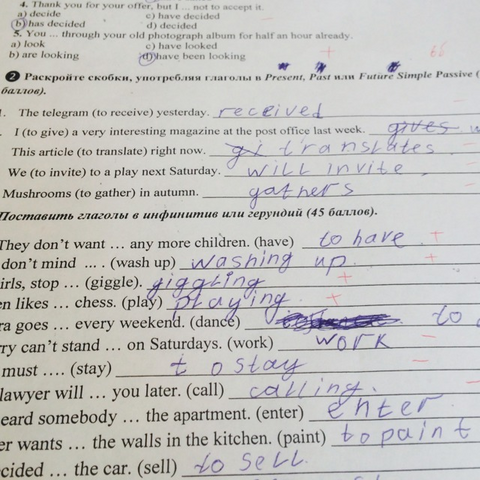 4. Thank you for your offer, but I ... not to accept it.
a) decide c) have decided
b) has decided d) decided
5. You ... through your old photograph album for half an hour already.
a) look c) have looked
b) are looking d) have been looking
2 Раскройте скобки, употребляя глаголы в Present, Past или Future Simple Passive (
баллов).
The telegram (to receive) yesterday. received
I (to give) a very interesting magazine at the post office last week. gives
This article (to translate) right now. translates
We (to invite) to a play next Saturday. will invite
Mushrooms (to gather) in autumn. gathers
Поставить глаголы в инфинитив или герундий (45 баллов).
They don't want ... any more children. (have) to have +
don't mind ... . (wash up) washing up +
irls, stop ... (giggle). giggling +
en likes ... chess. (play) playing +
ra goes ... every weekend. (dance) to
rry can't stand ... on Saturdays. (work) work
must .... (stay) to stay
lawyer will ... you later. (call) calling.
eard somebody ... the apartment. (enter) enter
er wants ... the walls in the kitchen. (paint) to paint
cided ... the car. (sell) to sell